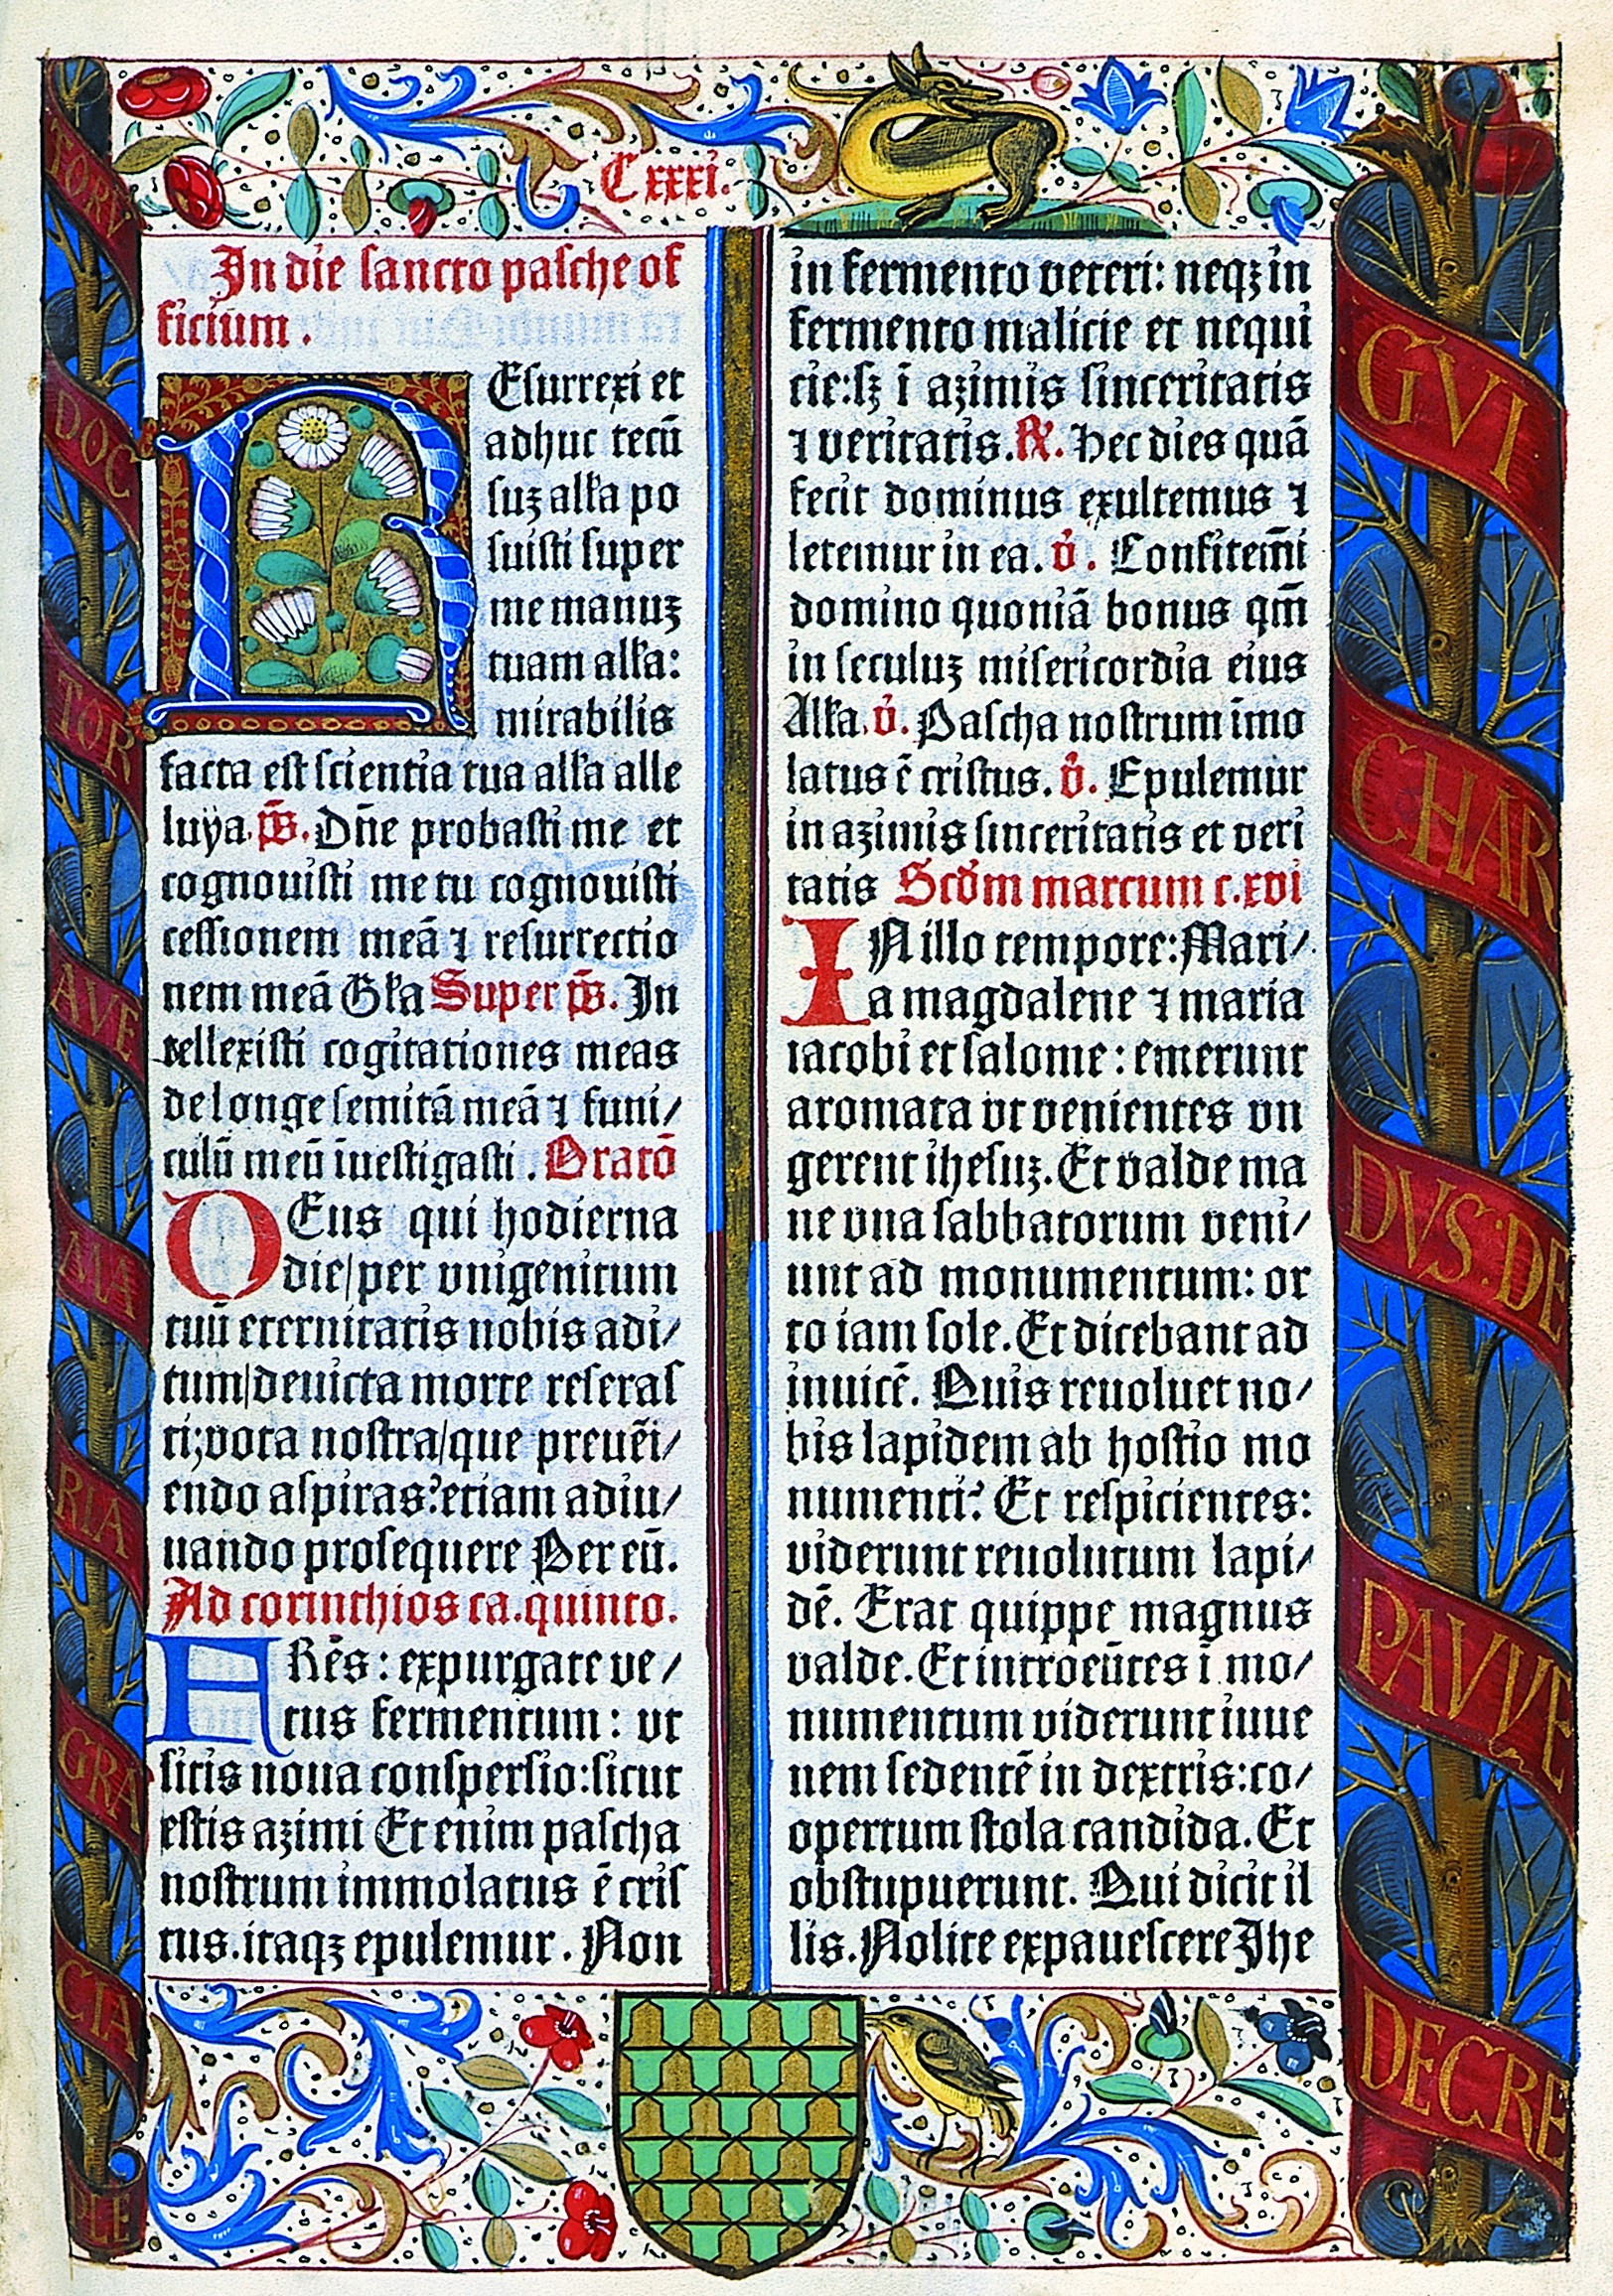 Cxxxi.
In die sancto pasche of
ficium.
REsurrexi et
adhuc tecū
suꝫ alľa po
suisti super
me manuꝫ
tuam alľa:
mirabilis
facta est scientia tua alľa alle
luya. ps̄. Dn̄e probasti me et
cognouisti me tu cognouisti
cessionem meā ⁊ resurrectio
nem meā Gľa Super ps̄. In
tellexisti cogitationes meas
de longe semitā meā ⁊ funi/
culū meū īuestigasti. Oratō
DEus qui hodierna
die/per vnigenitum
tuū eternitatis nobis adi/
tum/deuicta morte reseras
ti;vota nostra/que preuēi/
endo aspiras?etiam adiu/
uando prosequere Per eū.
Ad corinthios ca.quinto.
FRēs: expurgate ve/
tus fermentum: vt
sitis noua conspersio:sicut
estis azimi Et enim pascha
nostrum immolatus ē cris
tus.itaqꝫ epulemur. Non
in fermento veteri: neqꝫ in
fermento malicie et nequi
cie:sꝫ ī azimis sinceritatis
⁊ veritatis. R̷. Hec dies quā
fecit dominus exultemus ⁊
letemur in ea. v̉. Confitem̄i
domino quoniā bonus qm̄
in seculuꝫ misericordia eius
Alľa. v̉. Pascha nostrum īmo
latus ē cristus. v̉. Epulemur
in azimis sinceritatis et veri
tatis Scd̄m marcum c.xvi
IN illo tempore: Mari/
a magdalene ⁊ maria
iacobi et salome: emerunt
aromata vt venientes vn
gerent ihesuꝫ. Et valde ma
ne vna sabbatorum veni/
unt ad monumentum: or
to iam sole. Et dicebant ad
inuicē. Quis reuoluet no/
bis lapidem ab hostio mo
numenti? Et respicientes:
viderunt reuolutum lapi/
dē. Erat quippe magnus
valde. Et introeūtes ī mo/
numentum viderunt iuue
nem sedentē in dextris:co/
opertum stola candida. Et
obstupuerunt. Qui dicit il
lis. Nolite expauescere Ihe
TORV
DOC
TOR
AVE
MA
RIA
GRA
CIA
PLE
GVI
CHAR
DVS:DE
PAVVE
DECRE